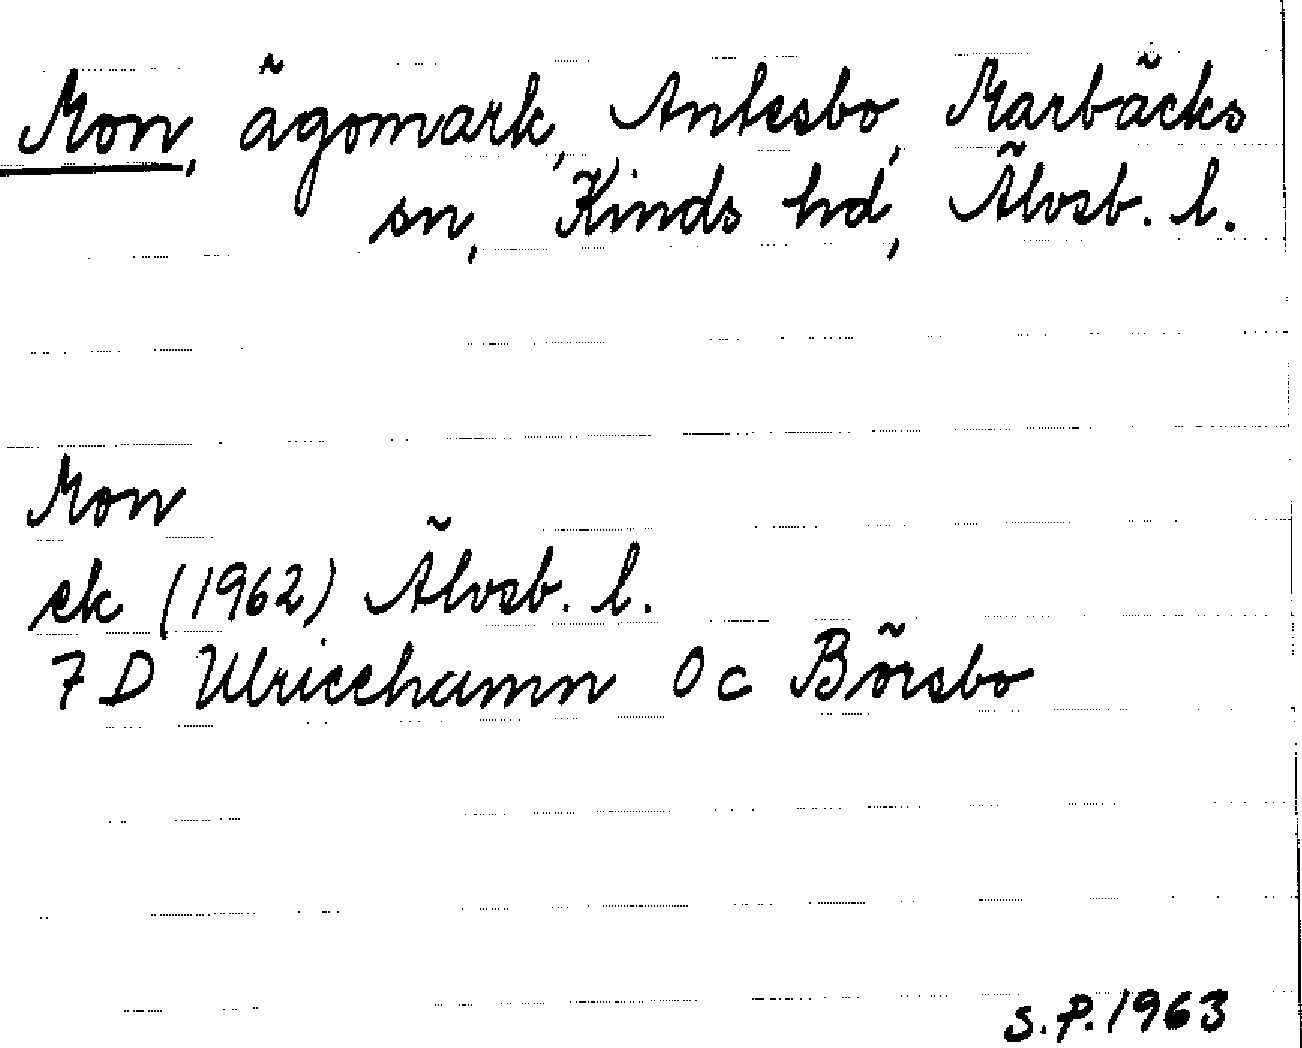 Mon, ägomark, Antesbo, Marbäcks
sn, Kinds hd, Älvsb. l.
Mon
ek (1962) Älvsb. l.
7 D Ulricehamn 0 c Börsbo
S.P. 1963